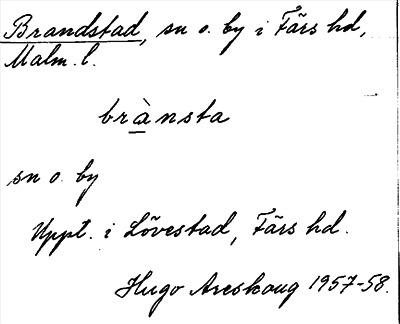 Brandstad, sn o. by i Färs hd,
Malm. l.
brànsta
sn o. by
Uppt. i Lövestad, Färs hd.
Hugo Areskoug 1957-58.